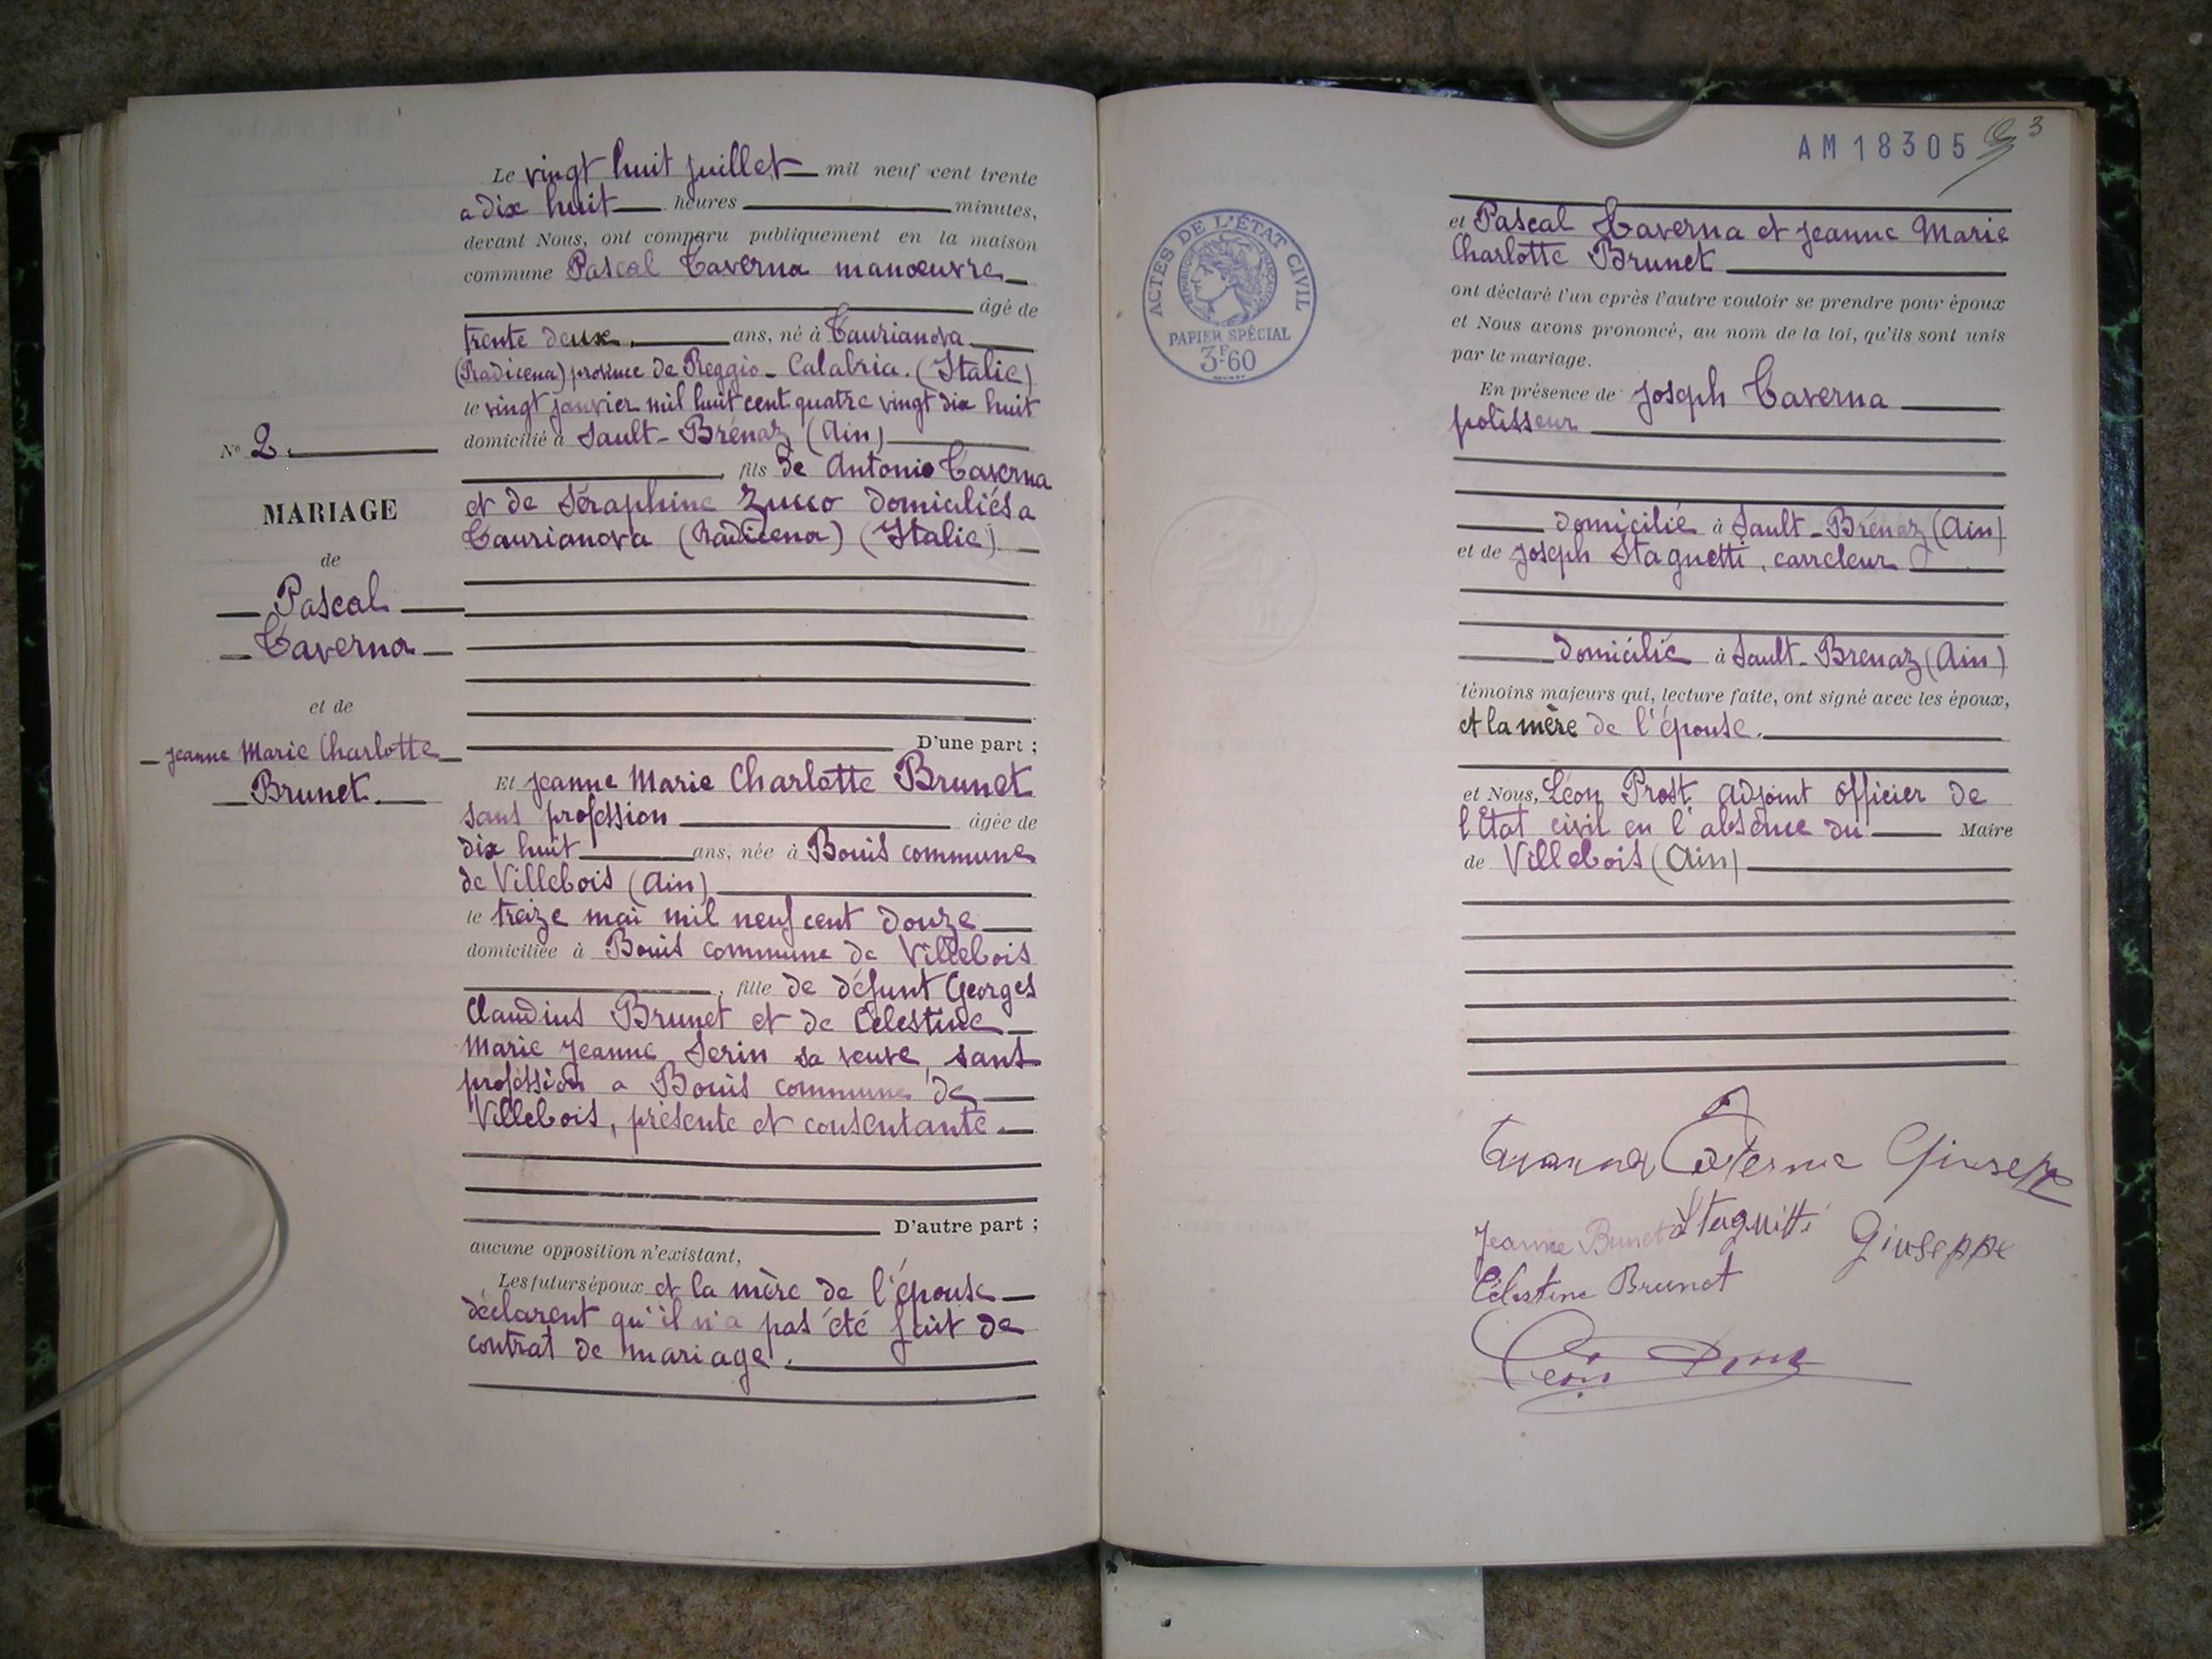 Le vingt huit juillet mil neuf cent trente
a dix huit heures minutes,
devant Nous, ont comparu publiquement en la maison
commune Pascal Taverna manoeuvre
âgé de
trente deux ans, né à Taurianova
(Radicena) province de Reggio-Calabria. (Italie)
le vingt janvier mil huit cent quatre vingt dix huit
domicilié à Sault-Brénaz (Ain)
fils de Antonio Taverna
et de Séraphine Zucco domiciliés a
Taurianova (Radicena) (Italie)
D'une part ;
Et Jeanne Marie Charlotte Brunet
sans profession âgée de
dix huit ans, née à Bouis commune
de Villebois (Ain)
le treize mai mil neuf cent douze
domiciliée à Bouis commune de Villebois
, fille de défunt Georges
Claudius Brunet et de Célestine
Marie Jeanne Serin sa veuve, sans
profession a Bouis commune de
Villebois, présente et consentante.
D'autre part ;
aucune opposition n'existant,
Les futurs époux et la mère de l'épouse
déclarent qu'il n'a pas été fait de
contrat de mariage.
N° 2.
MARIAGE
de
Pascal
Taverna
et de
Jeanne Marie Charlotte
Brunet.
AM18305
3
ACTES DE L'ÉTAT CIVIL
RÉPUBLIQUE FRANÇAISE
PAPIER SPÉCIAL
3F60
et Pascal Taverna et Jeanne Marie
Charlotte Brunet
ont déclaré l'un après l'autre vouloir se prendre pour époux
et Nous avons prononcé, au nom de la loi, qu'ils sont unis
par le mariage.
En présence de Joseph Taverna
polisseur
domicilié à Sault-Brénaz (Ain)
et de Joseph Stagnetti, carreleur
domicilié à Sault-Brenaz (Ain)
témoins majeurs qui, lecture faite, ont signé avec les époux,
et la mère de l'épouse.
et Nous, Léon Prost adjoint officier de
l'Etat civil en l'absence du Maire
de Villebois (Ain)
Taverna Taverna Giuseppe
Jeanne Brunet Stagnitti Giuseppe
Célestine Brunet
Léon Prost